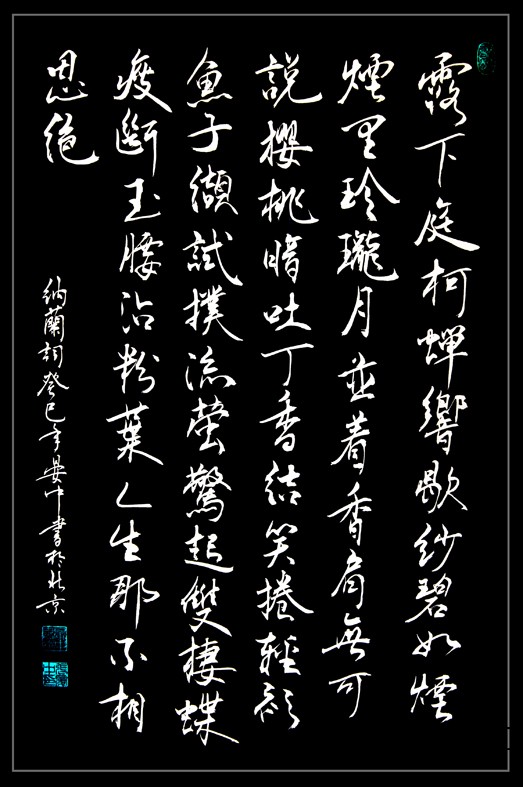 露下庭柯蟬響歇紗碧如煙
煙里玲瓏月並着香肩無可
說櫻桃暗吐丁香結笑捲輕衫
魚子纈試撲流螢驚起雙棲蝶
瘦斷玉腰沾粉葉人生那不相
思絕
納蘭詞癸巳年晏中書於北京